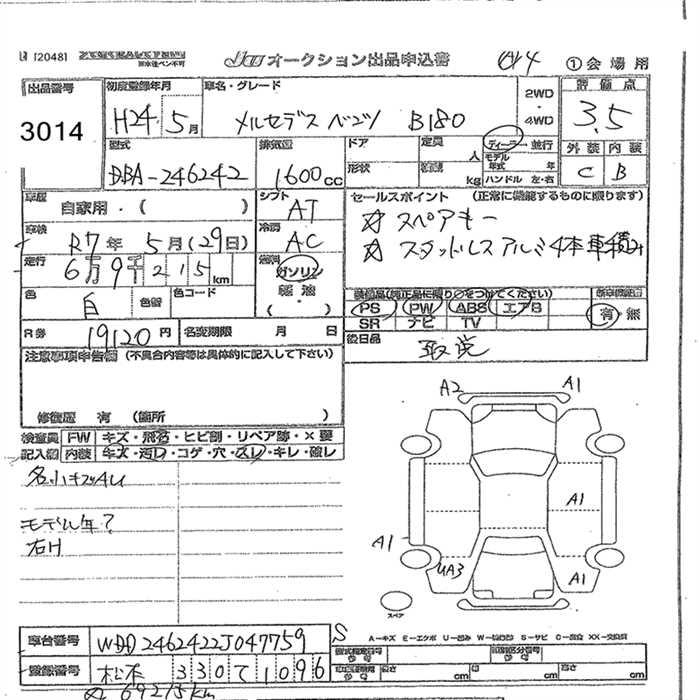 [2048]
JU オークション出品申込書
①会場用
出品番号
3014
初度登録年月
H24. 5月
車名・グレード
メルセデス ベンツ B180
2WD
・
4WD
評価点
3.5
外装 内装
C B
型式
DBA-246242
排気量
1600cc
ドア
形状
定員
人
kg
ディーラー・並行
モデル年式 年
ハンドル 左・右
車歴
自家用・( )
シフト
AT
車検
R7年 5月(29日)
冷房
AC
走行
6万9千215km
燃料
ガソリン
軽油
( ・ )
色
白
色替
色コード
R券
19120円
名変期限 月 日
セールスポイント (正常に機能するものに限ります)
☆ スペアキー
☆ スタッドレスアルミ4本車積み
装備品(純正品に限り○をつけてください)
PS PW ABS エアB
SR ナビ TV
有・無
後日品
取説
注意事項申告欄 (不具合内容等は具体的に記入して下さい)
修復歴 有 (箇所 )
検査員記入欄
FW キズ・飛石・ヒビ割・リペア跡・×要
内装 キズ・汚れ・コゲ・穴・スレ・キレ・破レ
モデル年?
右H
A2
A1
A1
A1
UA3
A1
スペア
A-キズ E-エクボ U-凹み W-補修跡 S-サビ C-腐食 XX-交換済
車台番号
WDD2462422J047759
登録番号
松本 330 て 1096
S
長さ cm 幅 cm 高さ cm
69215km